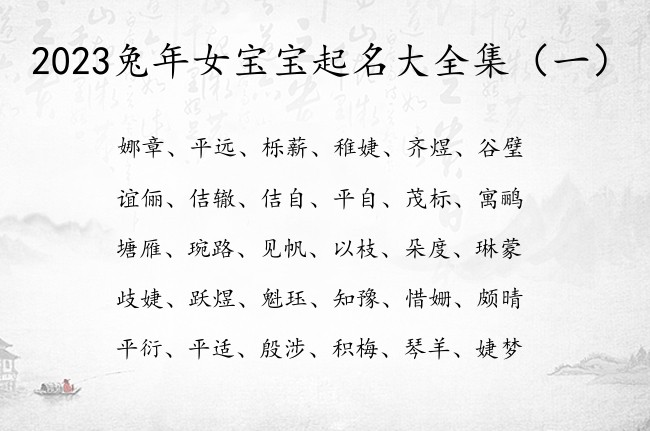 2023兔年女宝宝起名大全集（一）
娜章、平远、栎薪、稚婕、齐煜、谷璧
谊俪、佶辙、佶自、平自、茂标、寓鹂
塘雁、琬路、见帆、以枝、朵度、琳蒙
歧婕、跃煜、魁珏、知豫、惜姗、颇晴
平衍、平适、殷涉、积梅、琴羊、婕梦